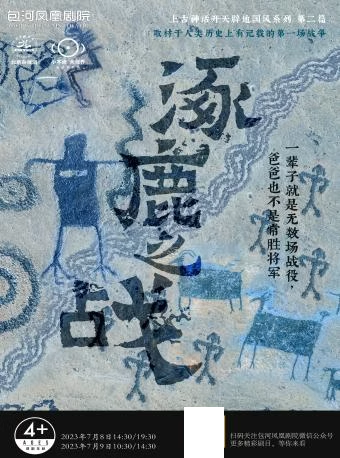 包河凤凰剧院
上古神话开天辟地国风系列 第二篇
取材于人类历史上有记载的第一场战争
涿鹿之战
一辈子就是无数场战役，
爸爸也不是常胜将军
4+
AGES
2023年7月8日14:30/19:30
2023年7月9日10:30/14:30
扫码关注包河凤凰剧院微信公众号
更多精彩剧目，等你来看